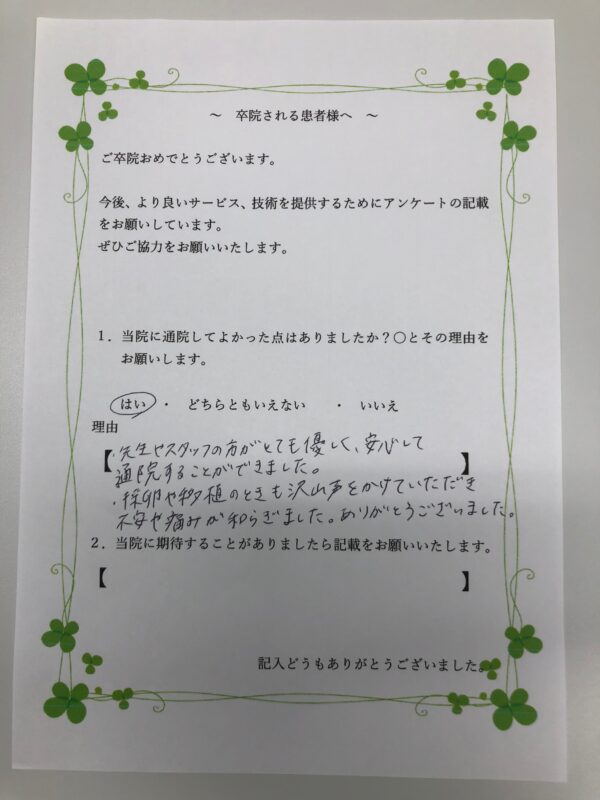 ～ 卒院される患者様へ ～
ご卒院おめでとうございます。
今後、より良いサービス、技術を提供するためにアンケートの記載
をお願いしています。
ぜひご協力をお願いいたします。
1．当院に通院してよかった点はありましたか？〇とその理由を
お願いします。
はい ・ どちらともいえない ・ いいえ
理由
【・先生やスタッフの方がとても優しく、安心して
通院することができました。】
・採卵や移植のときも沢山声をかけていただき
不安や痛みが和らぎました。ありがとうございました。
2．当院に期待することがありましたら記載をお願いいたします。
【 】
記入どうもありがとうございました。